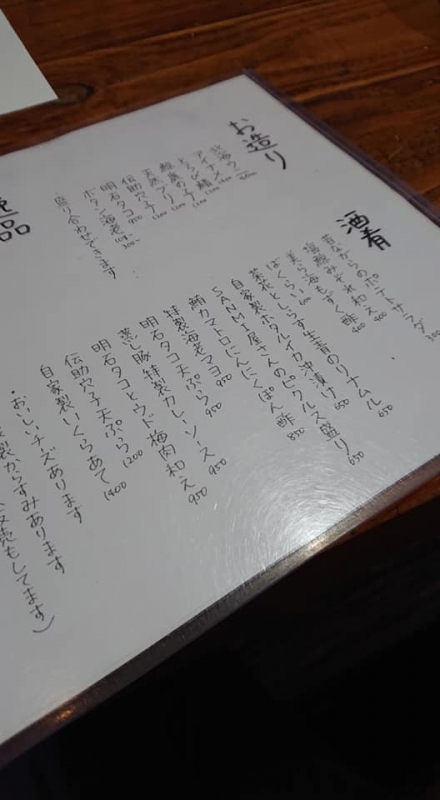 お造り
北海ウニ
アイナメ
トロシメ鯖
天然ブリ
伝助穴子
明石タコ
ボタン海老
盛り合わせできます
酒肴
昔ながらのポテトサラダ
塩鯨みぞれ和え 400
美ら海もずく酢 400
ばくらい 600
菜花としらす生青のりナムル 650
自家製ホタルイカ沖漬け 650
SANMI屋さんのピクルス盛り 650
鮪カマトロにんにくぽん酢 850
特製海老マヨ 950
明石タコ天ぷら 950
蒸し豚特製カレーソース 950
明石タコとウド梅肉和え 950
伝助穴子天ぷら 1200
自家製いくらあて 1400
・おいしいチーズあります
製からすみあります
販売もしてます)
逸品